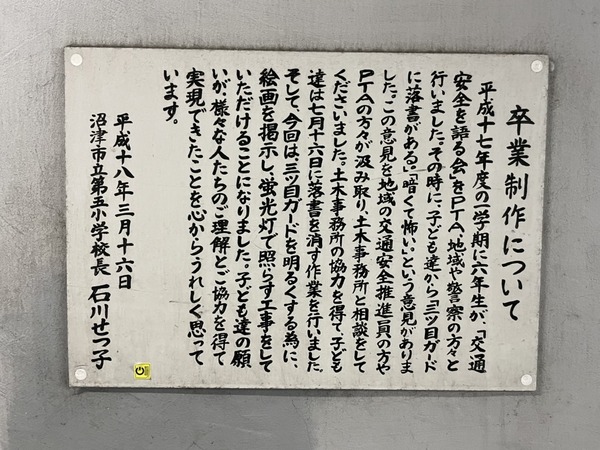 卒業制作について
平成十七年度の一学期に六年生が、「交通
安全を語る会」をPTA、地域や警察の方々と
行いました。その時に、子ども達から「三ッ目ガード
に落書がある。」「暗くて怖い。」という意見がありま
した。この意見を地域の交通安全推進員の方や
PTAの方々が汲み取り、土木事務所と相談をして
くださいました。土木事務所の協力を得て、子ども
達は七月十六日に落書を消す作業を行いました。
そして、今回は、三ッ目ガードを明るくする為に、
絵画を掲示し、蛍光灯で照らす工事をして
いただけることになりました。子ども達の願
いが、様々な人たちのご理解とご協力を得て
実現できたことを心からうれしく思って
います。
平成十八年三月十六日
沼津市立第五小学校長 石川せつ子